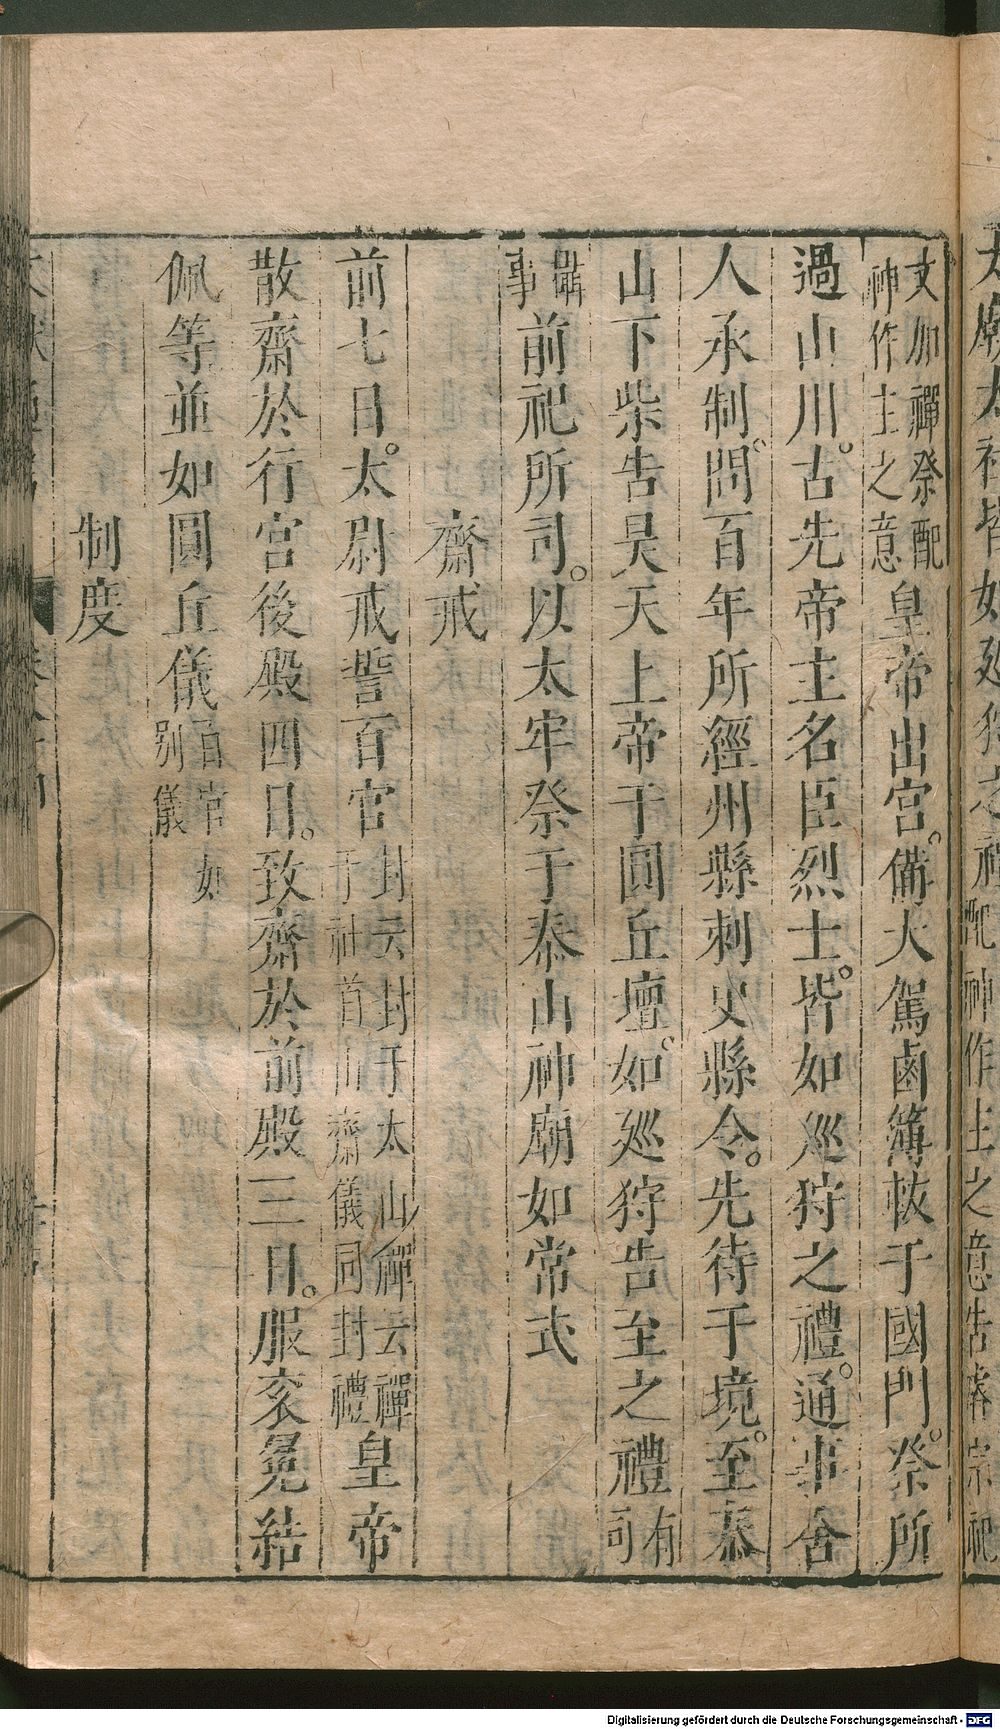 文加禪祭配神作主之意皇帝出宮。備大駕鹵簿軷于國門。祭所
過山川。古先帝主名臣烈士。皆如巡狩之禮。通事舍
人承制。問百年所經州縣刺史縣令。先待于境。至泰
山下柴告昊天上帝于圓丘壇。如廵狩告至之禮有司
攝事前祀所司。以太牢祭于泰山神廟如常式
齋戒
前七日。太尉戒誓百官封云封于太山禪云禪于社首山齋儀同封禮皇帝
散齋於行宮後殿四日。致齋於前殿三日。服袞冕結
佩等並如圓丘儀百官如别儀
制度
Digitalisierung gefördert durch die Deutsche Forschungsgemeinschaft - DFG